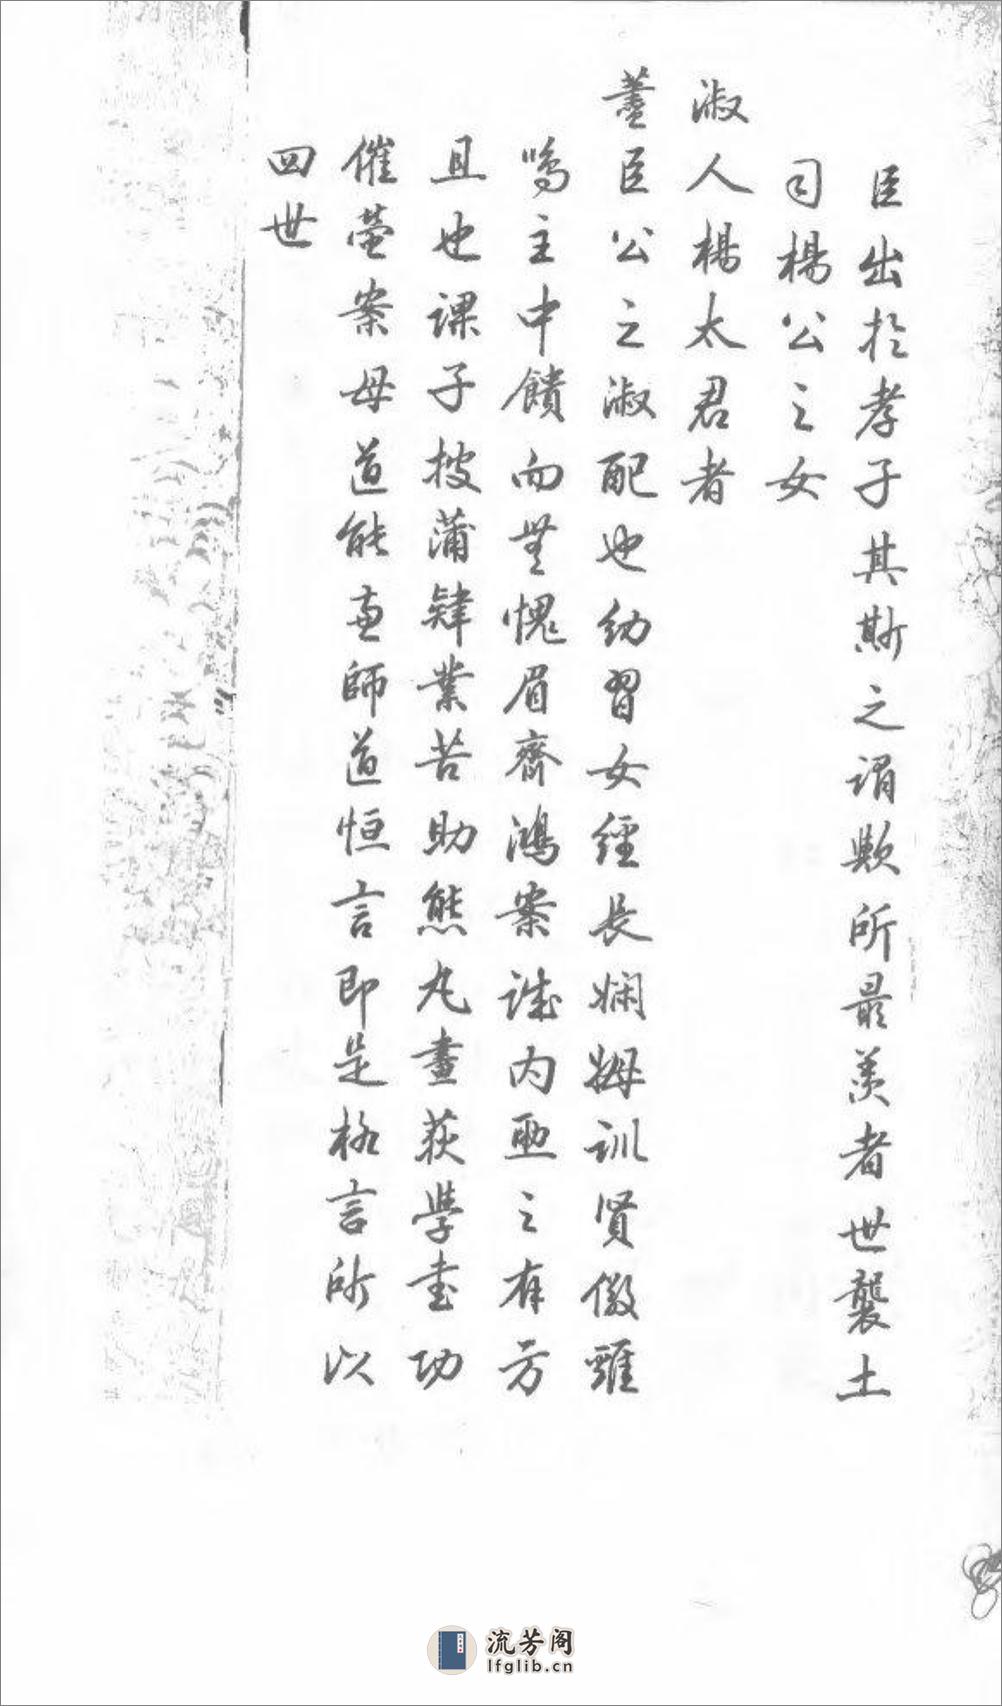 臣出於孝子其斯之謂歟所最羨者世襲土
司楊公之女
淑人楊太君者
藎臣公之淑配也幼習女經長嫻姆訓賢儆雞
鳴主中饋而無愧眉齊鴻案誠內助之有方
且也課子披蒲肄業苦助熊丸畫荻學書功
催螢案母道能兼師道恒言即是格言所以
四世
流芳阁
lfglib.cn